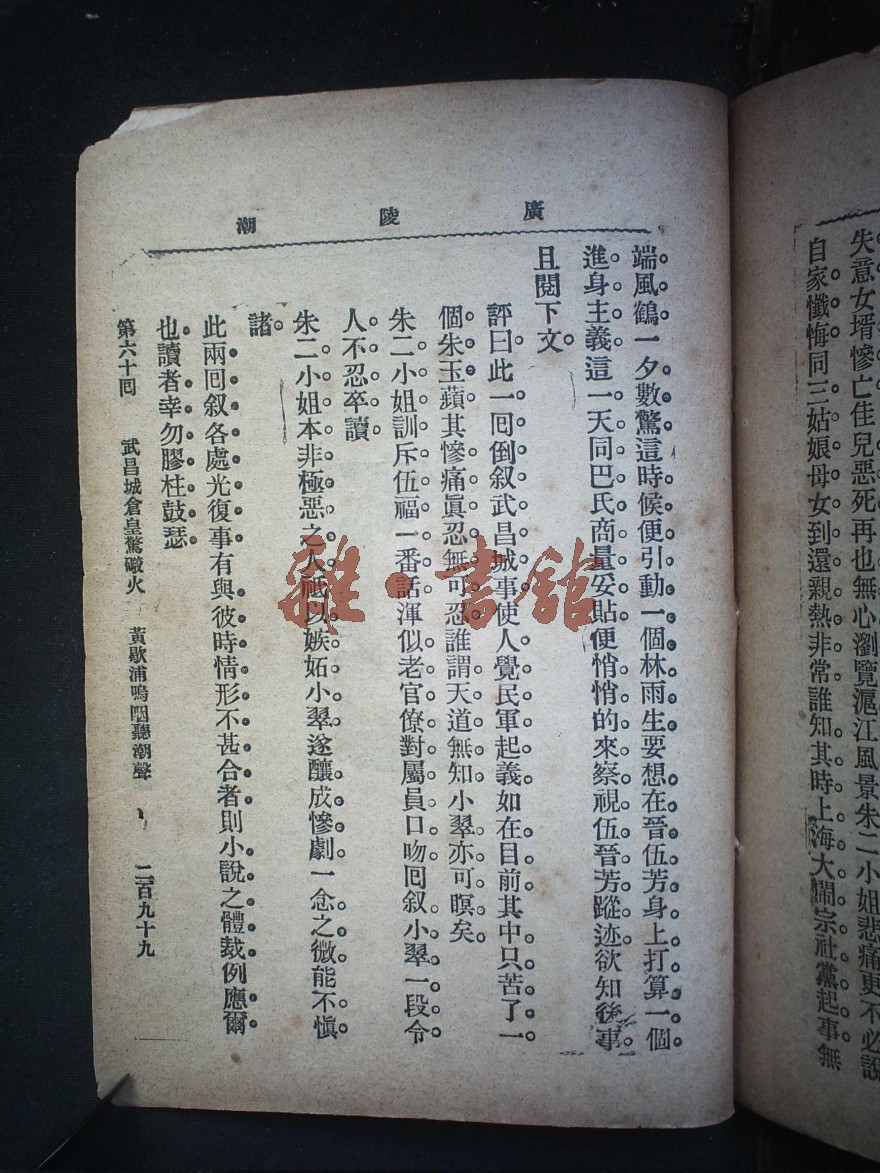 失意女壻慘亡佳兒惡死再也無心瀏覽滬江風景朱二小姐悲痛更不必說
自家懺悔同三姑娘母女到還親熱非常誰知其時上海大鬧宗社黨起事無
廣陵潮
端風鶴一夕數驚這時候便引動一個林雨生要想在晉伍芳身上打算一個
進身主義這一天同巴氏商量妥貼便悄悄的來察視伍晉芳蹤迹欲知後事
且閱下文
評曰此一囘倒叙武昌城事使人覺民軍起義如在目前其中只苦了一
個朱玉蘋其慘痛眞忍無可忍誰謂天道無知小翠亦可瞑矣
朱二小姐訓斥伍福一番話渾似老官僚對屬員口吻囘叙小翠一段令
人不忍卒讀
朱二小姐本非極惡之人祇以嫉妬小翠遂釀成慘劇一念之微能不愼
諸
此兩囘叙各處光復事有與彼時情形不甚合者則小說之體裁例應爾
也讀者幸勿膠柱鼓瑟
第六十囘 武昌城倉皇驚礮火 黃歇浦嗚咽聽潮聲 二百九十九
雜·書館